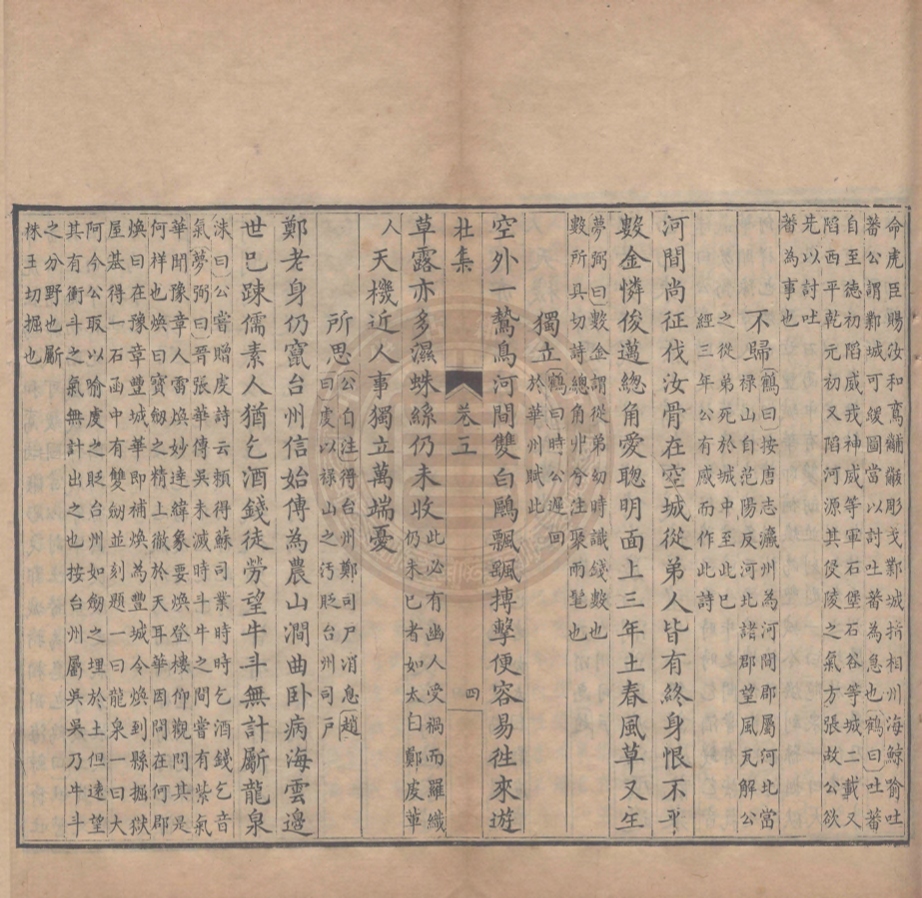 命虎臣賜汝和鸞黼黻彫戈鄴城指相州海鯨猶吐
蕃公謂鄴城可緩圖當以討吐蕃為急也鶴曰吐蕃
自至德初陷威戎神威等軍石堡石谷等城二載又
陷西平乾元初又陷河源其侵陵之氣方張故公欲
先以討吐
蕃為事也
不歸
鶴曰按唐志瀛州為河間郡屬河北當
祿山自范陽反河北諸郡望風瓦解公
之從弟死於城中至此巳
經三年公有感而作此詩
河間尚征伐汝骨在空城從弟人皆有終身恨不平
數金憐俊邁總角愛聰明面上三年土春風草又生
夢弼曰數金謂從弟幼時識錢數也
數所具切詩總角丱兮注聚兩髦也
獨立
鶴曰時公遲回
於華州賦此
空外一鷙鳥河間雙白鷗飄颻搏擊便容易徃來遊
杜集
卷三
四
草露亦多濕蛛絲仍未收
此必有幽人受禍而羅織
仍未巳者如太白鄭虔輩
人
天機近人事獨立萬端憂
所思
公自注得台州鄭司戶消息趙
曰虔以祿山之汚貶台州司戶
鄭老身仍竄台州信始傳為農山澗曲卧病海雲邊
世巳踈儒素人猶乞酒錢徒勞望牛斗無計斸龍泉
洙曰公嘗贈虔詩云頼得蘇司業時時乞酒錢乞音
氣夢弼曰晉張華傳吳未滅時斗牛之間嘗有紫氣
華聞豫章人雷煥妙達緯象要煥登樓仰觀問其是
何祥也煥曰寶劒之精上徹於天耳華因問在何郡
煥曰在豫章豐城華即補煥為豐城令煥到縣掘獄
屋基得一石函中有雙劒並刻題一曰龍泉一曰大
阿今公取之以喻虔之貶台州如劒之埋於土但遠望
其有衝斗之氣無計出之也按台州屬吳吳乃牛斗
之分野也斸
株玉切掘也